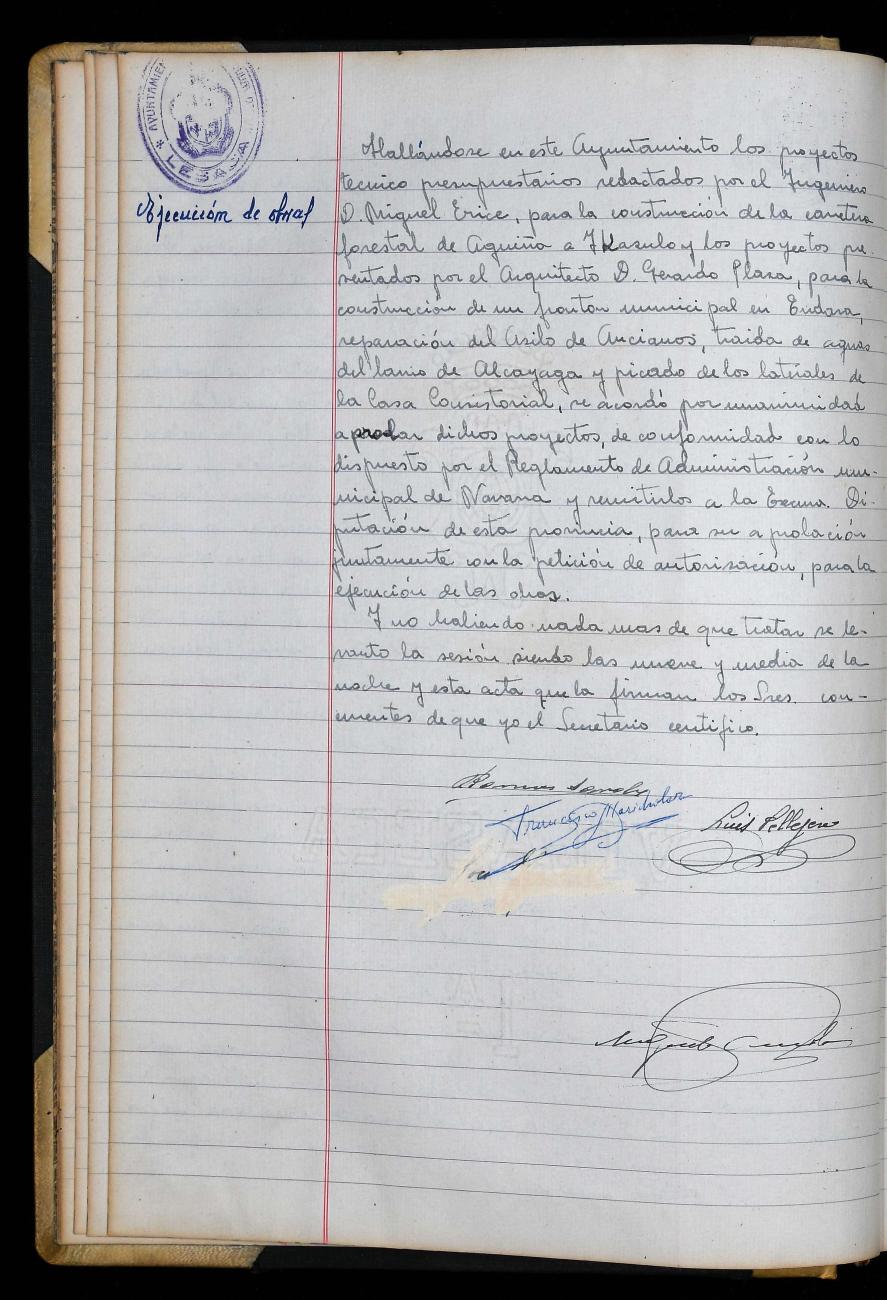 AYUNTAMIEN
LESACA
Ejecución de obras
Hallándose en este Ayuntamiento los proyectos
tecnico presupuestarios redactados por el Ingeniero
D. Miguel Erice, para la construcción de la carretera
forestal de Aguiña a Ikasulo y los proyectos pre-
sentados por el Arquitecto D. Gerardo Plaza, para la
construcción de un fronton municipal en Endara,
reparación del Asilo de Ancianos, traida de aguas
del barrio de Alcayaga y picado de los laterales de
la Casa Consistorial, se acordó por unanimidad
aprobar dichos proyectos, de conformidad con lo
dispuesto por el Reglamento de Administración mu-
nicipal de Navarra y remitirlos a la Excma. Di-
putación de esta provincia, para su aprobación
juntamente con la petición de autorización, para la
ejecución de las obras.
Y no habiendo nada mas de que tratar se le-
vanto la sesión siendo las nueve y media de la
noche y esta acta que la firman los Sres. con-
currentes de que yo el Secretario certifico.
Francisco Marichalar
Luis Pellejero